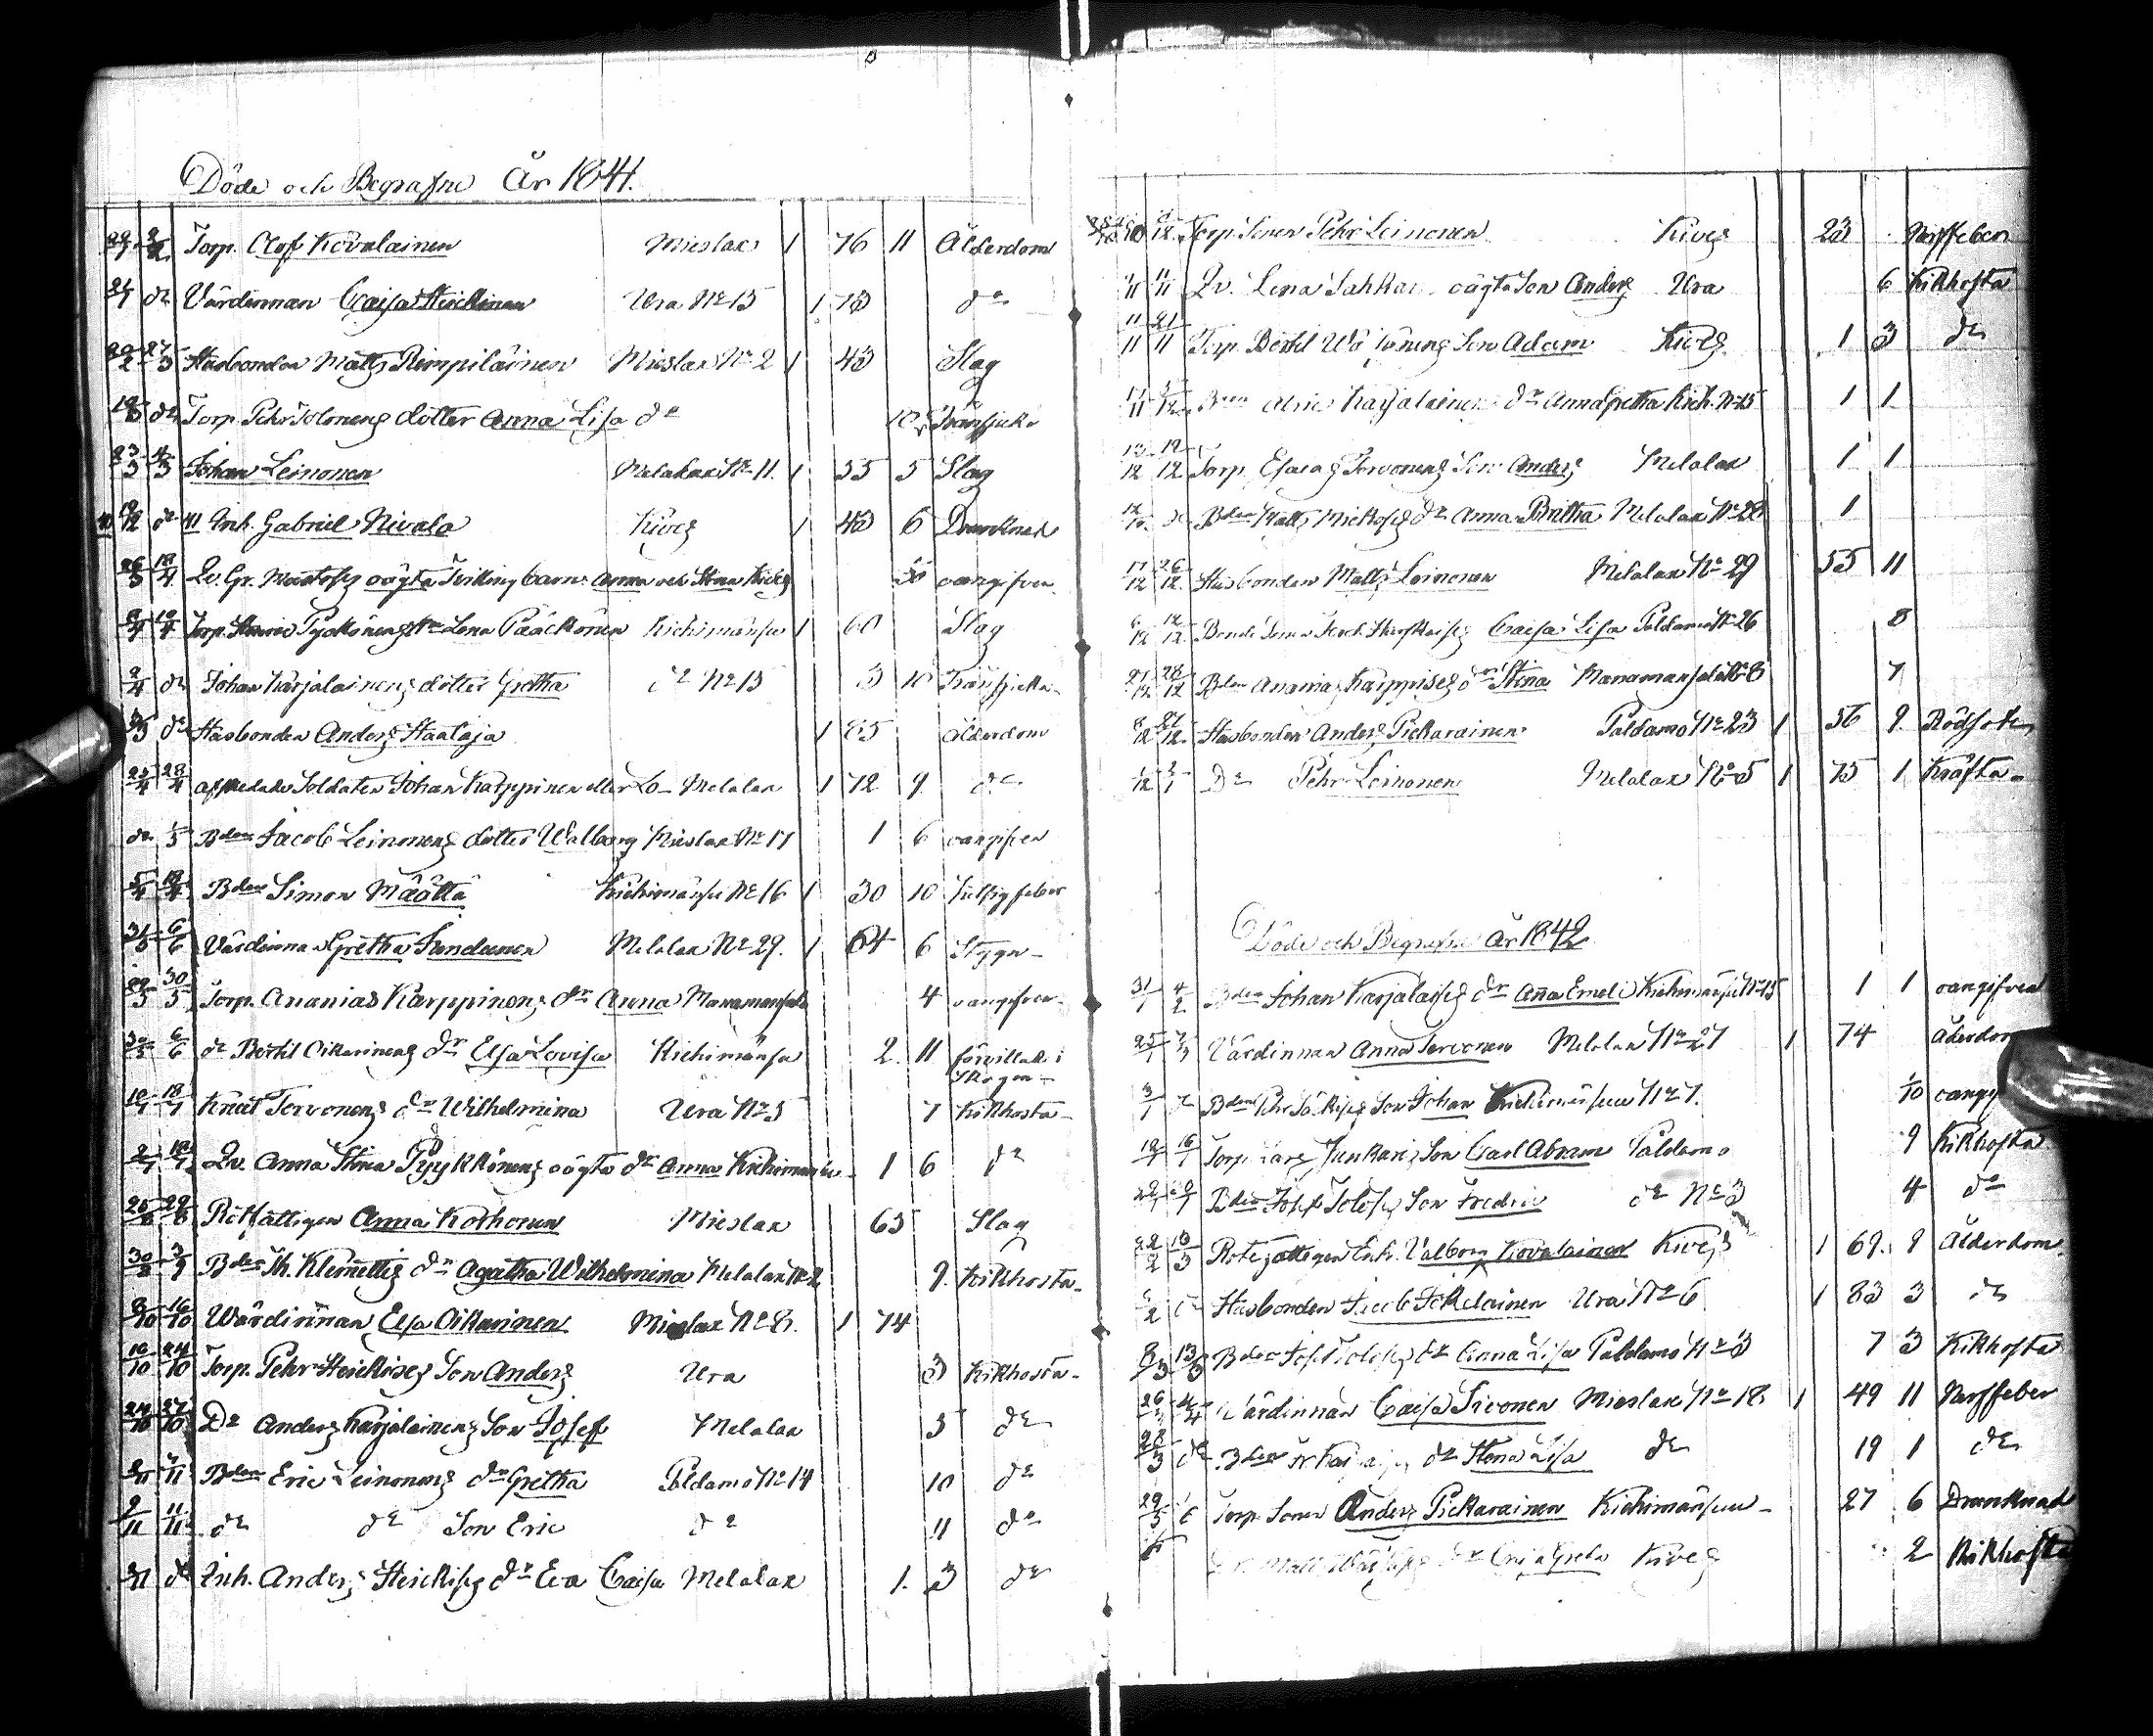 Döde och Begrafne År 1841.
22/1 2/2 Torp. Olof Kovalainen Mieslax 1 76 11 Ålderdom
24/1 do Värdinnan Caisa Heickinen Ura No 15 1 73 do
20/2 27/3 Husbonden Matts Rimpiläinen Mieslax No 2 1 43 Slag
19/3 do Torp. Pehr Tolonens dotter Anna Lisa do 10 Trånsjuka
23/3 4/3 Johan Leinonen Melalax No 11. 1 55 5 Slag
40 19/12 do 41 Inh. Gabriel Nivala Kives 1 43 6 Drunknad
26/3 18/4 Qv. Gr. Mustos oägta Tvilling barn Anna och Stina Kives oangifven
8/4 19/4 Torp. Henric Pyckönens Lena Pääckönen Kiehimänsu 1 60 Slag
2/4 do Johan Karjalainens dotter Gretha do No 15 3 10 Trånsjuka
do Husbonden Anders Haataja 1 85 ålderdom
25/4 28/4 afskedade Soldaten Johan Karppinen eller Lo Melalax 1 72 9 do
do 1/5 Bden Jacob Leinonens dotter Walborg Mieslax No 17 1 6 oangifven
5/4 18/4 Bden Simon Määttä Kiehimänsu No 16 1 30 10
31/5 6/6 Värdinnan Gretha Sundeinen Melalax No 29. 1 64 6 Stygn
29/5 30/5 Torp. Ananias Karppinens dr Anna Manamansalo 4 oangifven
30/5 6/6 do Bertil Oikarinens dr Elsa Lovisa Kiehimänsu 2. 11 förvillad i
Skogen
10/7 18/7 Knut Tervonens dr Wilhelmina Ura No 5 7 Kikhosta
2/7 18/7 Qv. Anna Stina Pyykkönens oägta dr Anna Kiehimänsu 1 6 do
25/8 29/8 Rothjonet Anna Korhonen Mieslax 63 Slag
30/8 3/9 Bden Th. Klemettis dr Agatha Wilhelmina Melalax No 2 9. Kikhosta
8/10 16/10 Wärdinnan Elsa Oikarinen Mieslax No 8. 1 74
10/10 24/10 Torp. Pehr Heickises Son Anders Ura 3 Kikhosta
24/10 27/10 Do Anders Karjalainens Son Josef Melalax 3 do
2/11 7/11 Bden Eric Leinonens dr Gretha Paldamo No 14 10 do
9/11 11/11 do do Son Eric do 11 do
2/11 do Inh. Anders Heickises dr Eva Caisa Melalax 1. 3 do
Torp. Sonen Pehr Leinonen Kives 23 Nerffeber
11/11 Qv. Lena Sahkar oägta Son Anders Ura 6 Kikhosta
11/11 21/11 Torp. Bertil Väisänens Son Adam Kives 1 3 do
Karjalainens dr Anna Gretha Kieh. No 15 1 1
13/12 19/12 Torp. Esaias Tervonens Son Anders Melalax 1 1
do Bden Matts Mickos dr Anna Britha Melalax No 28 1
17/12 26/12 Husbonden Matts Leinonen Melalax No 29 55 11
Caisa Lisa Paldamo No 26 8
27/12 28/12 Bden Ananias Karppises dr Stina Manamansalo No 8 7
8/12 27/12 Husbonden Anders Pickarainen Paldamo No 23 1 56 9. Rödsot
1/12 2/1 Do Pehr Leinonen Melalax No 5 1 75 1 Kräfta
Döde och Begrafne År 1842
31/1 4/2 Bden Johan Karjalaises dr Anna Emeli Kiehimänsu No 15 1 1 oangifven
25/1 Värdinnan Anna Tervonen Melalax No 27 1 74 Ålderdom
3/1 do Bden Son Johan Kiehimänsuu No 7. 1/10
12/1 16/1 Torp. Lars Junkaris Son Carl Abram Paldamo 9 Kikhosta
Bden Josef Tolosés Son Fredric do No 3 4 do
22/2 13/3 Rotejonet Enk. Valborg Kovalainen Kives 1 69. 9 Ålderdom
5/2 do Husbonden Jacob Jokelainen Ura No 6 1 83 3 do
8/3 13/3 Bden Josef Tolosés dr Anna Lisa Paldamo No 3 7 3 Kikhosta
26/3 4/4 Värdinnan Caisa Sivonen Mieslax No 18 1 49 11 Nerffeber
28/3 do Bden dr Stina Lisa do 19 1 do
29/5 Torp. Sonen Anders Pickarainen Kiehimänsuu 27 6 Drunknad
Matts dr Caisa Greta Kives 2 Kikhosta